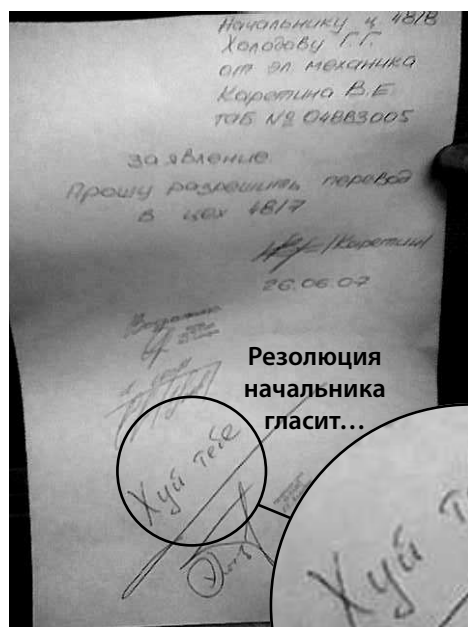 Начальнику ц. 48/8
Холодову Г.Г.
от эл. механика
Каретина В.Е.
таб № 04883005
заявление.
Прошу разрешить перевод
в цех 48/7
/Каретин/
26.06.07
Резолюция
начальника
гласит...
Хуй тебе
Хуй